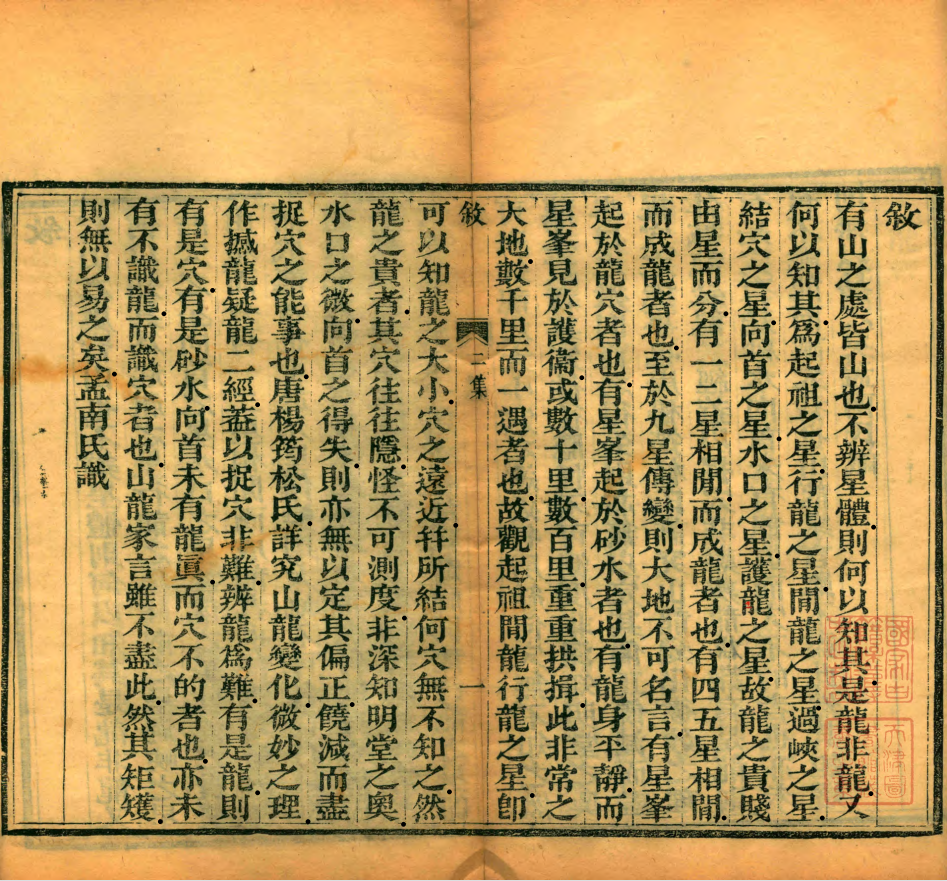 敘
有山之處皆山也不辨星體則何以知其是龍非龍又
何以知其爲起祖之星行龍之星閒龍之星過峽之星
結穴之星向首之星水口之星護龍之星故龍之貴賤
由星而分有一二星相閒而成龍者也有四五星相閒
而成龍者也至於九星傳變則大地不可名言有星峯
起於龍穴者也有星峯起於砂水者也有龍身平靜而
星峯見於護衞或數十里數百里重重拱揖此非常之
大地數千里而一遇者也故觀起祖閒龍行龍之星卽
敘 二集 一
可以知龍之大小穴之遠近幷所結何穴無不知之然
龍之貴者其穴往往隱怪不可測度非深知明堂之奧
水口之微向首之得失則亦無以定其偏正饒減而盡
捉穴之能事也唐楊筠松氏詳究山龍變化微妙之理
作撼龍疑龍二經蓋以捉穴非難辨龍爲難有是龍則
有是穴有是砂水向首未有龍眞而穴不的者也亦未
有不識龍而識穴者也山龍家言雖不盡此然其矩矱
則無以易之矣孟南氏識